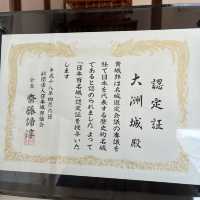 認定証
大洲城殿
貴城郭は名城選定会議の審議を
経て日本を代表する歴史的名城
であると認められました よって
「日本百名城」認定証を授与いた
します
平成十八年四月六日
財団法人日本城郭協会
会長